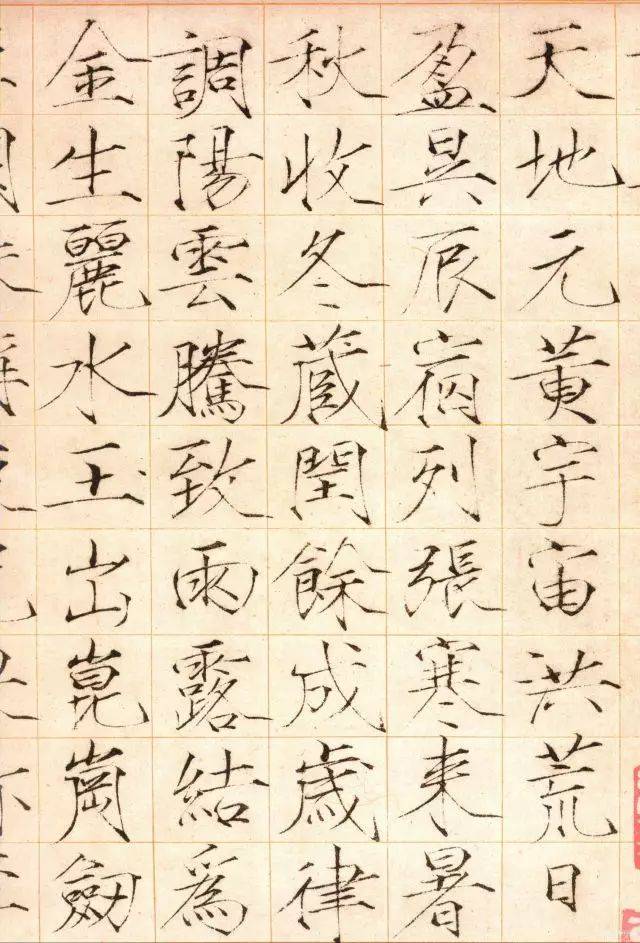 天地元黄宇宙洪荒日
盈昃辰宿列張寒来暑
秋收冬蔵閏餘成歳律
調陽雲騰致雨露結爲
金生麗水玉出崑崗劒